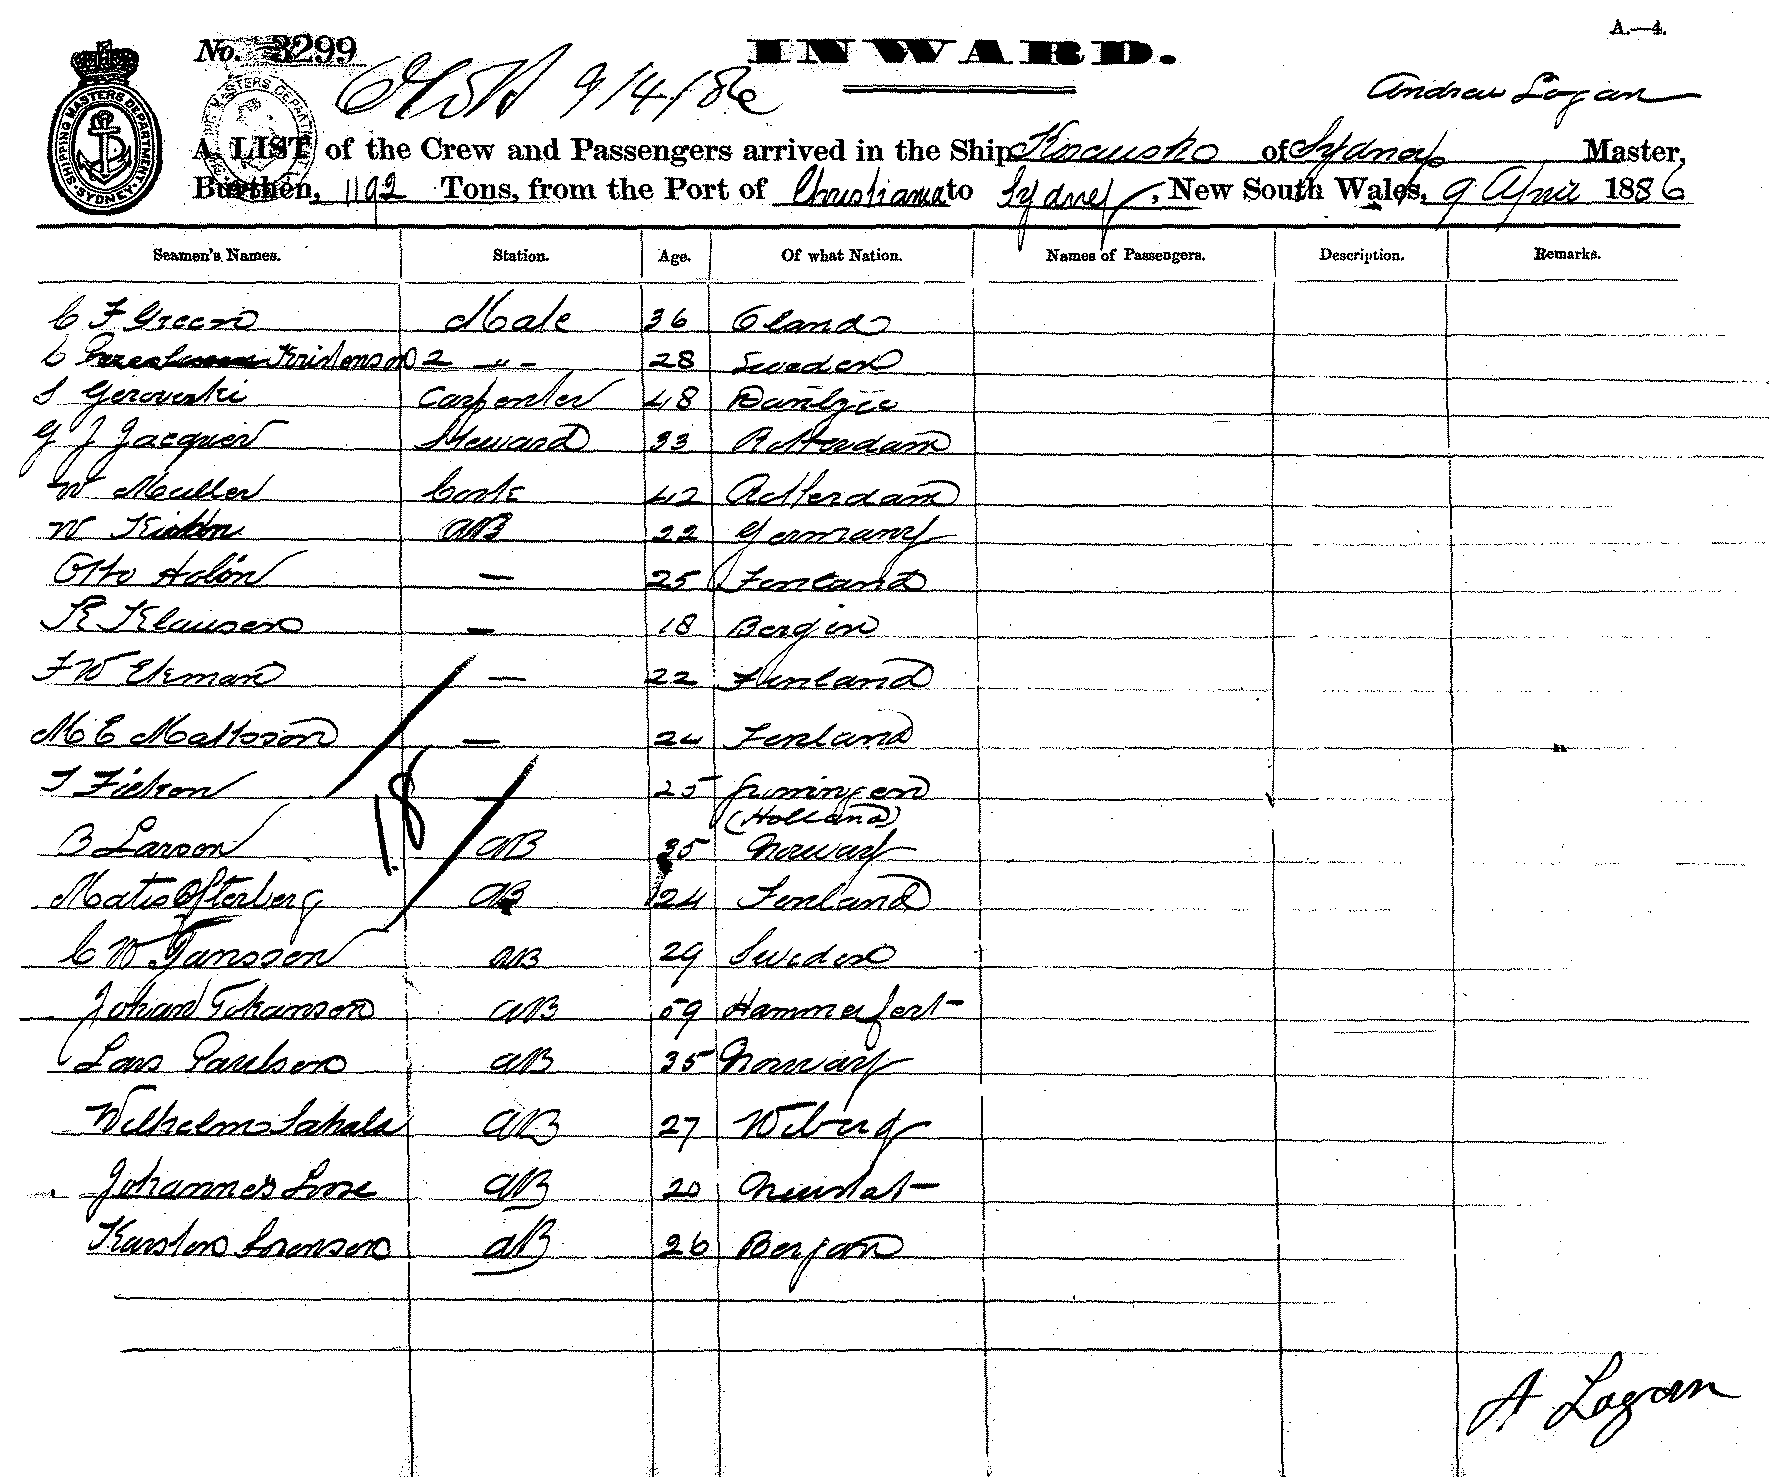 A.—4.
No. 3299
INWARD.
9/4/86
Andrew Logan
SHIPPING MASTERS DEPARTMENT SYDNEY
A LIST of the Crew and Passengers arrived in the Ship of Sydney Master,
Burthen, 1192 Tons, from the Port of Christiania to Sydney, New South Wales, 9 April 1886
Seamen's Names. Station. Age. Of what Nation. Names of Passengers. Description. Remarks.
C F Green Mate 36 Oland
C Kristenson 2 -"- 28 Sweden
S Gerowski Carpenter 48 Dantzic
G J Jacquier Steward 33 Rotterdam
W Muller Cook 42 Rotterdam
W AB 22 Germany
Otto Holon — 25 Finland
K Klausen — 18 Bergin
F W Ekman — 22 Finland
M E Mattsson — 24 Finland
— 25 Groningen
(Holland)
B Larson AB 35 Norway
18
Matis Osterberg AB 24 Finland
C W Jansson AB 29 Sweden
Johan Johanson AB 59 Hammerfest
Lars Paulsen AB 35 Norway
Wilhelm Sakala AB 27 Wiberg
Johannes Loose AB 20 Neustat
Karsten Sorensen AB 26 Bergan
A Logan